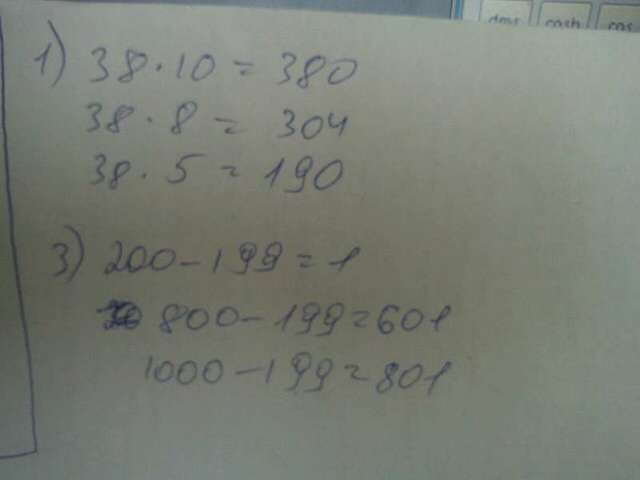 dms cosh cos
1) 38 · 10 = 380
38 · 8 = 304
38 · 5 = 190
3) 200 - 199 = 1
800 - 199 = 601
1000 - 199 = 801